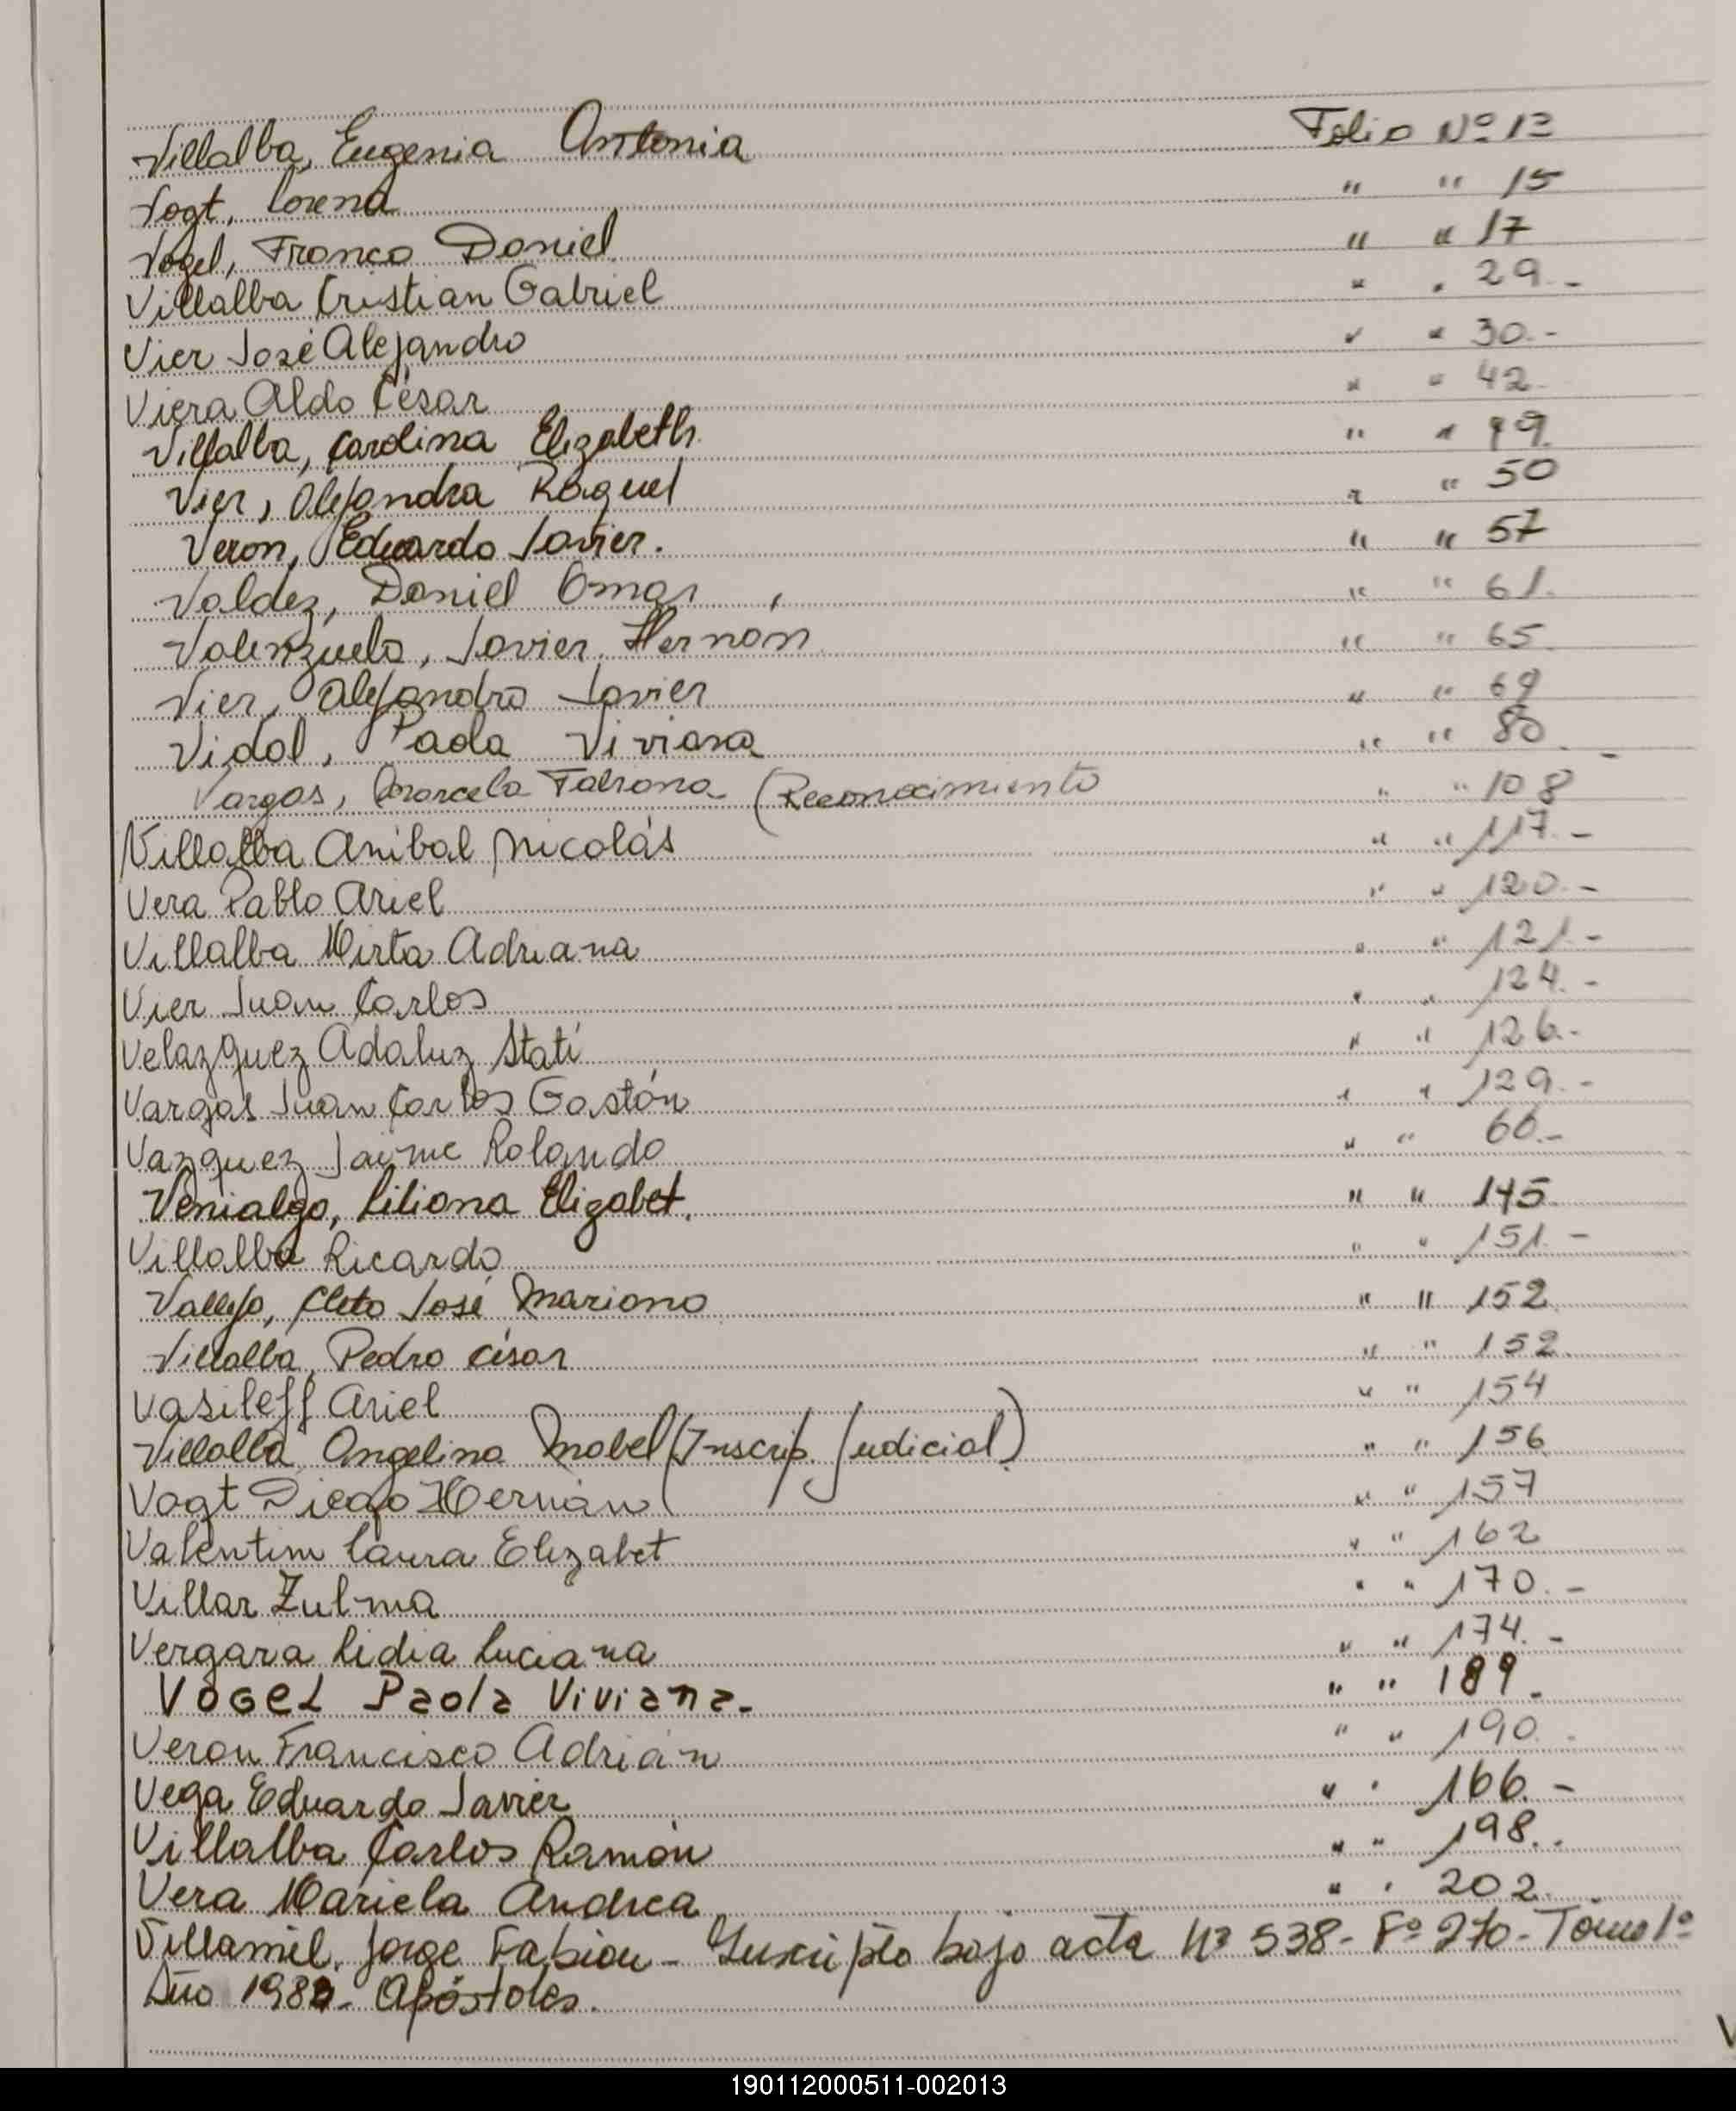 Villalba, Eugenia Antonia Folio Nº 13
Vogt, Lorena " " 15
Vogel, Franco Daniel " " 17
Villalba Cristian Gabriel " " 29.-
Vier José Alejandro " " 30.-
Viera Aldo César " " 42
Villalba, Carolina Elizabeth " " 49
Vier, Alejandra Raquel " " 50
Veron, Eduardo Javier. " " 57
Valdez, Daniel Omar " " 61.
Valenzuela, Javier Hernan " " 65
Vier, Alejandro Javier " " 69
Vidal, Paola Viviana " " 80
Vargas, Marcela Fabiana (Reconocimiento " " 108
Villalba Anibal Nicolás " " 117.-
Vera Pablo Ariel " " 120.-
Villalba Mirta Adriana " " 121.-
Vier Juan Carlos " " 124.-
Velazquez Adaluz Stati " " 126.-
Vargas Juan Carlos Gastón " " 129.-
Vazquez Jaime Rolando " " 66.-
Venialgo, Liliana Elizabet. " " 145
Villalba Ricardo " " 151.-
Vallejo, Cleto José Mariano " " 152
Villalba, Pedro César " " 152
Vasileff Ariel " " 154
Villalba Angelina Mabel (Inscrip. Judicial) " " 156
Vogt Diego Hernán " " 157
Valentim Laura Elizabet " " 162
Villar Zulma " " 170.-
Vergara Lidia Luciana " " 174.-
VOGEL Paola Viviana.- " " 189.-
Veron Francisco Adrián " " 190.-
Vega Eduardo Javier " " 166.-
Villalba Carlos Ramón " " 198..
Vera Mariela Andrea " " 202.
Villamil, Jorge Fabian - Inscripto bajo acta Nº 538- Fº 270- Tomo 1º
Año 1982- Apóstoles.
190112000511-002013